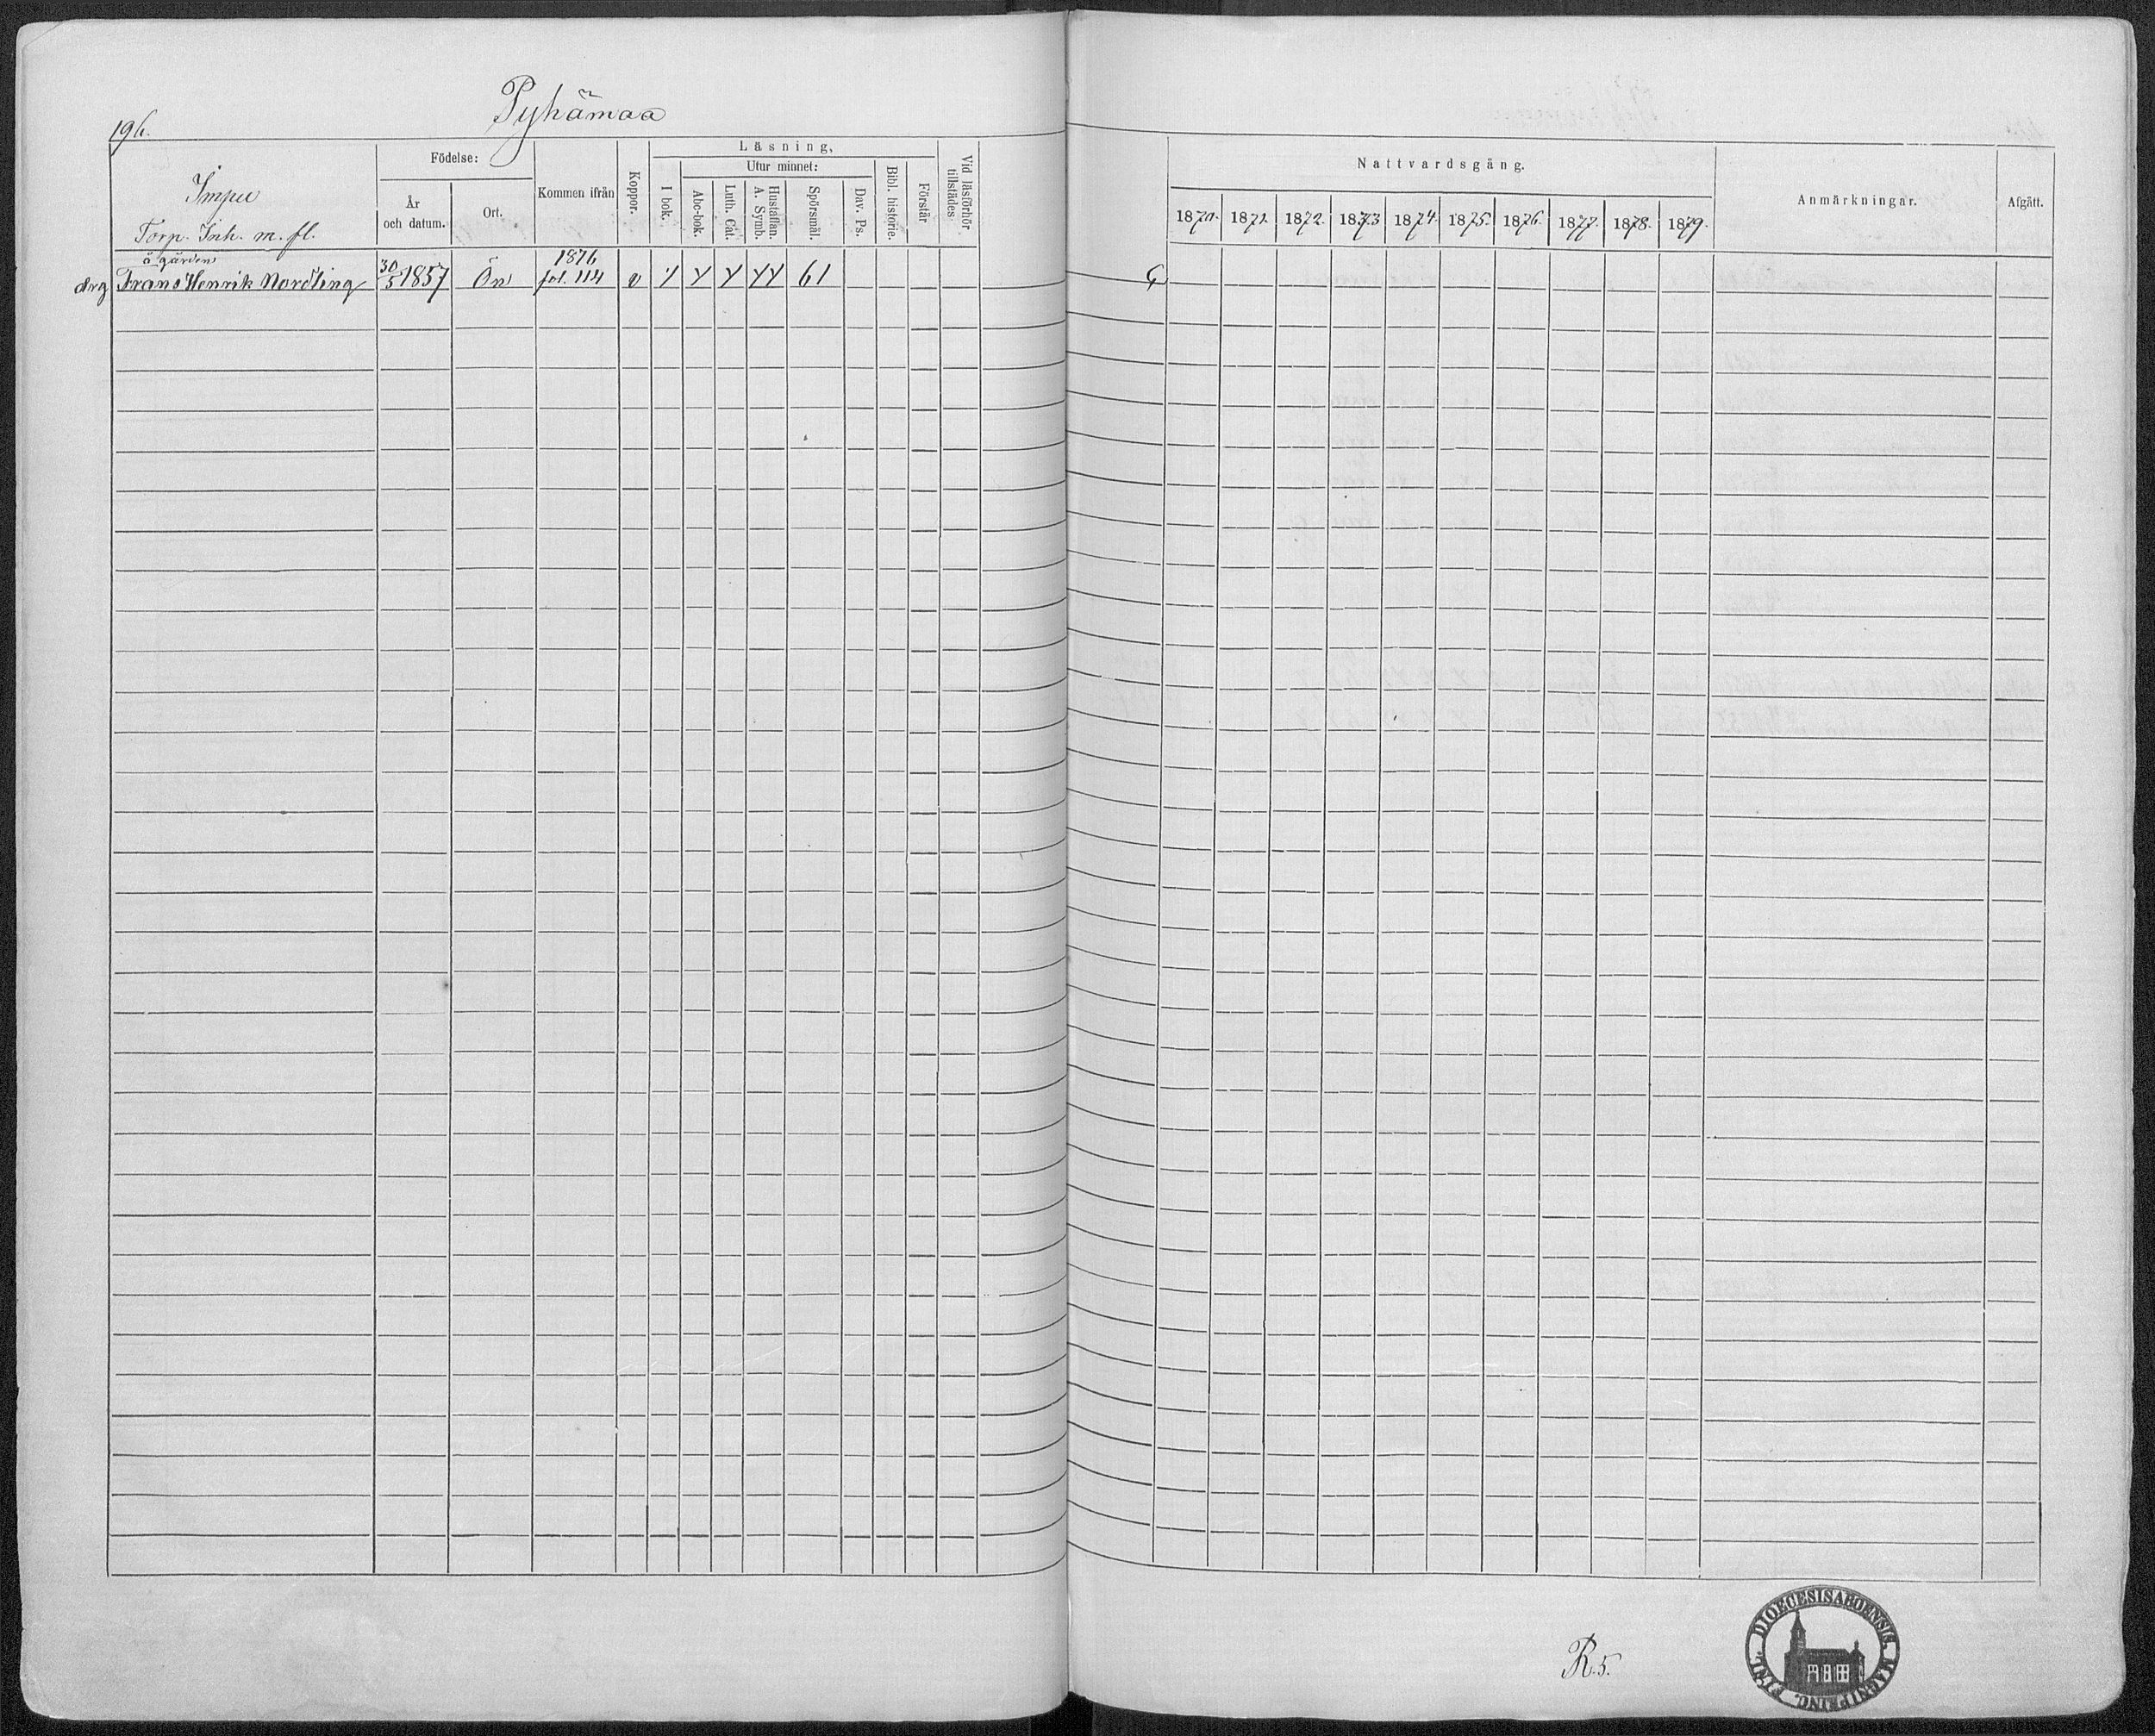 196.
Pyhämaa
Impu
Torp. Inh. m. fl.
Födelse:
År och datum.
Ort.
Kommen ifrån
Koppor.
Läsning,
I bok.
Utur minnet:
Abc-bok.
Luth. Cat.
Hustaflan. A. Symb.
Spörsmål.
Dav. Ps.
Bibl. historie.
Förstår
Vid läsförhör tillstädes
Nattvardsgång.
1870. 1871. 1872. 1873 1874 1875. 1876. 1877. 1878. 1879.
Anmärkningar.
Afgått.
å gården
drg Frans Henrik Nordling 30/5 1857 Ön 1876 fol. 114 v 61
R.5.
DIOECESIS ABOENSIS MAGNI PRINC. FINL.